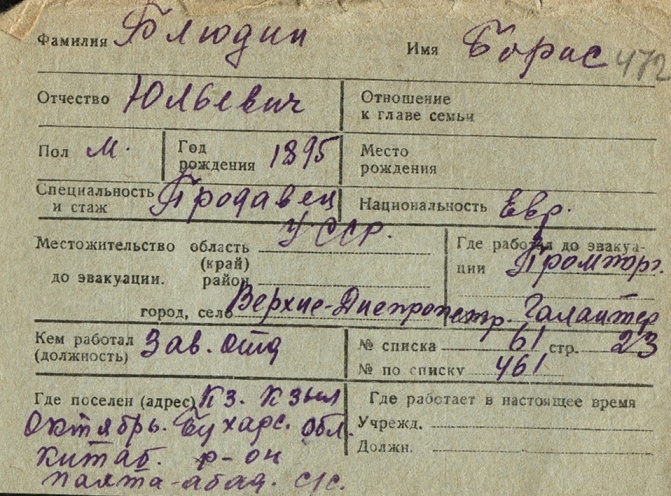 Фамилия Блюдин Имя Борис 472
Отчество Юльевич Отношение
к главе семьи
Пол М. Год рождения 1895 Место
рождения
Специальность и стаж Продавец Национальность Евр.
Местожительство область УССР. Где работал до эвакуа-
(край) ции Промторг.
до эвакуации. район
город, село Верхне-Днепропетр. Галантер
Кем работал Зав. отд № списка 61 стр. 23
(должность) № по списку 461
Где поселен (адрес) Кз. Кзыл Где работает в настоящее время
Октябрь. Бухарс. обл. Учрежд.
Китаб. р-он Должн.
Пахта-абад. с/с.